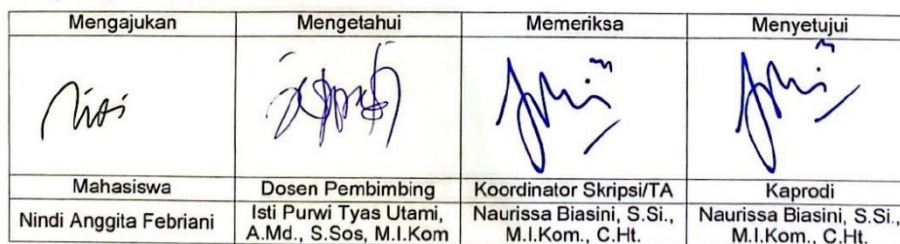 Mengajukan Mengetahui Memeriksa Menyetujui
Mahasiswa Dosen Pembimbing Koordinator Skripsi/TA Kaprodi
Nindi Anggita Febriani Isti Purwi Tyas Utami, A.Md., S.Sos, M.I.Kom Naurissa Biasini, S.Si., M.I.Kom., C.Ht. Naurissa Biasini, S.Si., M.I.Kom., C.Ht.